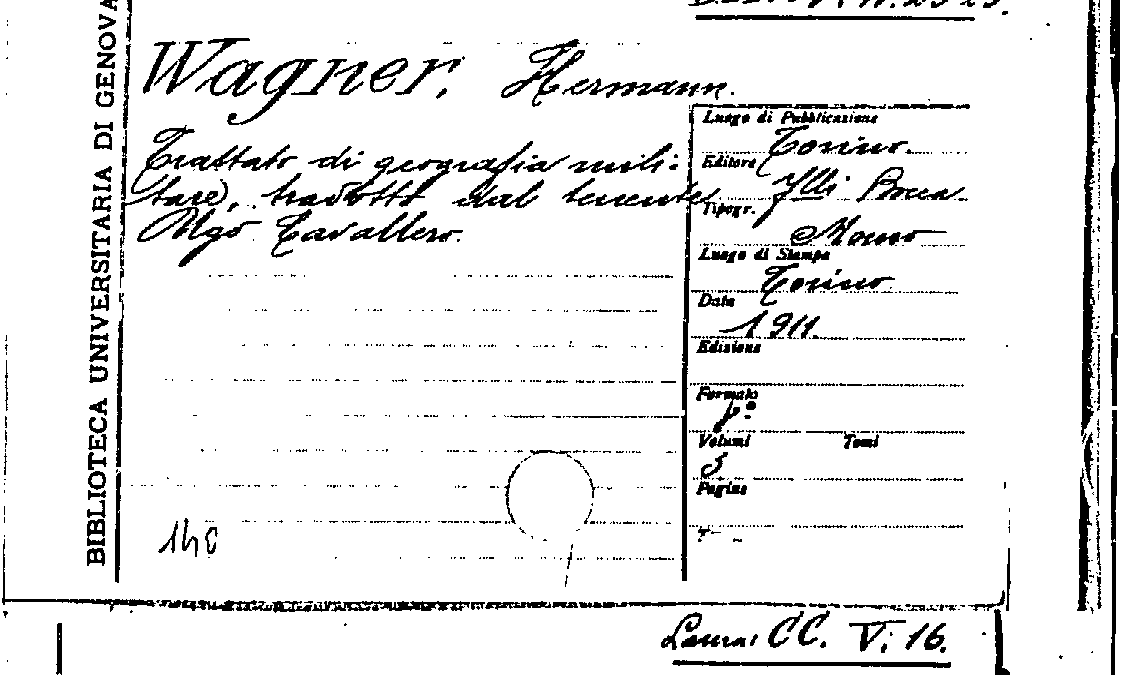 BIBLIOTECA UNIVERSITARIA DI GENOVA
Wagner, Hermann.
Trattato di geografia mili-
tare, tradotto dal tenente
Ugo Cavallero.
Luogo di Pubblicazione
Torino.
Editore
f.lli Bocca.
Tipogr.
Luogo di Stampa
Torino
Data
1911.
Edizione
Formato
8°
Volumi Tomi
3
Pagine
CC. V. 16.